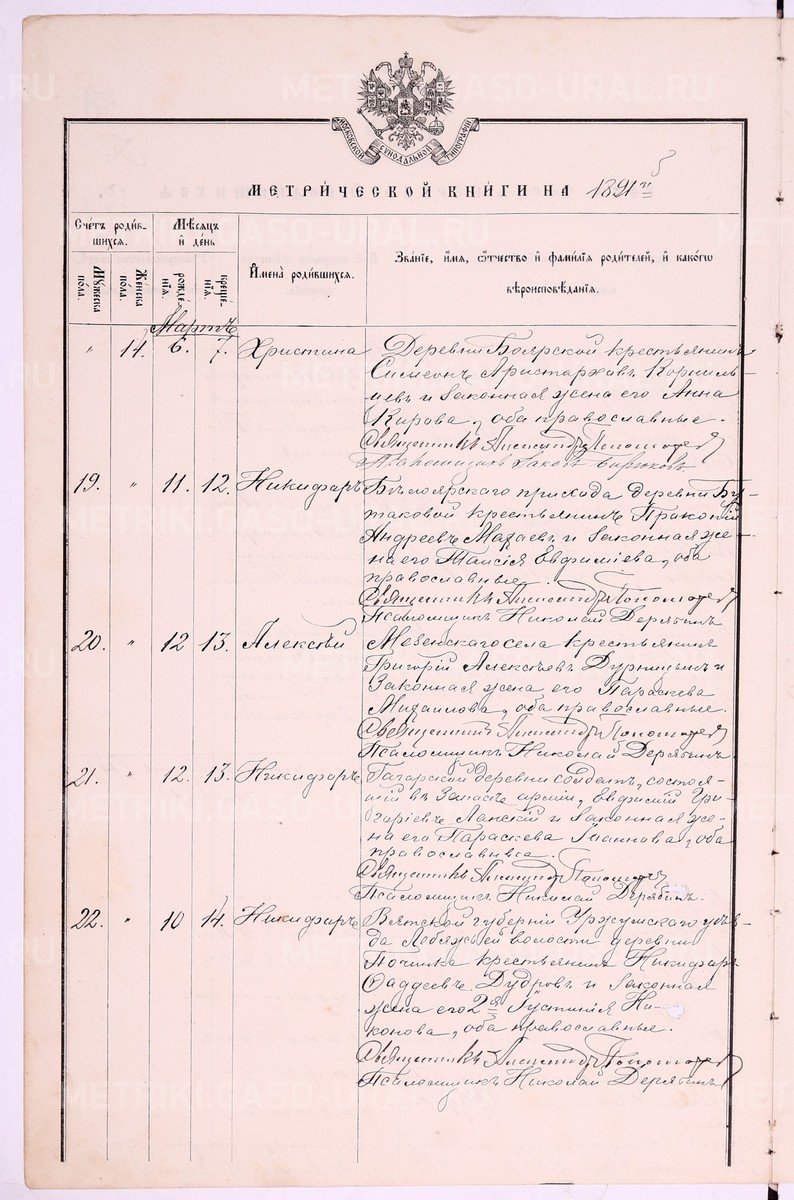 МОСКОВСКОЙ СѴНОДАЛЬНОЙ ТИПОГРАФІИ
МЕТРИ́ЧЕСКОЙ КНИ́ГИ НА 1891 й
Сче́тъ роди́вшихсѧ.
Мѣ́сѧцъ и҆ де́нь
Мꙋ́жеска по́ла.
Же́нска по́ла.
рожде́нїѧ.
креще́нїѧ.
И҆мена̀ роди́вшихсѧ.
Зва́нїе, и҆́мѧ, ѻ҆́тчество и҆ фами́лїѧ роди́телей, и҆ како́гѡ
вѣроисповѣ́данїѧ.
Мартъ
" 14. 6. 7. Христина Деревни Боярской крестьянинъ
Симеонъ Аристарховъ Корниль-
цевъ и законная жена его Анна
Кирова, оба православные.
Священникъ Александръ Пономаревъ
Яковъ Бирюковъ
19. " 11. 12. Никифоръ Бѣлоярскаго прихода деревни Бу-
таковой крестьянинъ Прокопій
Андреевъ и законная же-
на его Таисія Евфиміева, оба
православные.
Священникъ Александръ Пономаревъ
Псаломщикъ Николай Дерябинъ
20. " 12 13. Алексѣй Мезенскаго села крестьянинъ
Григорій Алексѣевъ Дурницынъ и
законная жена его Параскева
Михаилова, оба православные.
Священникъ Александръ Пономаревъ
Псаломщикъ Николай Дерябинъ.
21. " 12. 13. Никифоръ Гагарской деревни солдатъ, состоя-
щій въ запасѣ арміи, Евфимій Гри-
горіевъ Ланскій и законная же-
на его Параскева Іоаннова, оба
православные.
Священникъ Александръ Пономаревъ
Псаломщикъ Николай Дерябинъ.
22. " 10 14. Никифоръ Вятской губерніи Уржумскаго уѣз-
да Лебяжьей волости деревни
Починка крестьянинъ Никифоръ
Ѳаддеевъ Дудровъ и законная
жена его 2я Іустинія Ни-
конова, оба православные.
Священникъ Александръ Пономаревъ
Псаломщикъ Николай Дерябинъ